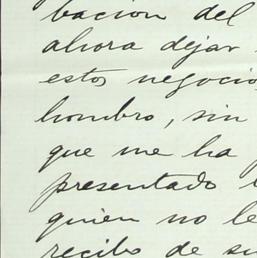 bacion del
ahora dejar
estos negocio
hombro, sin
que me ha
presentado
quien no le
recibo de su